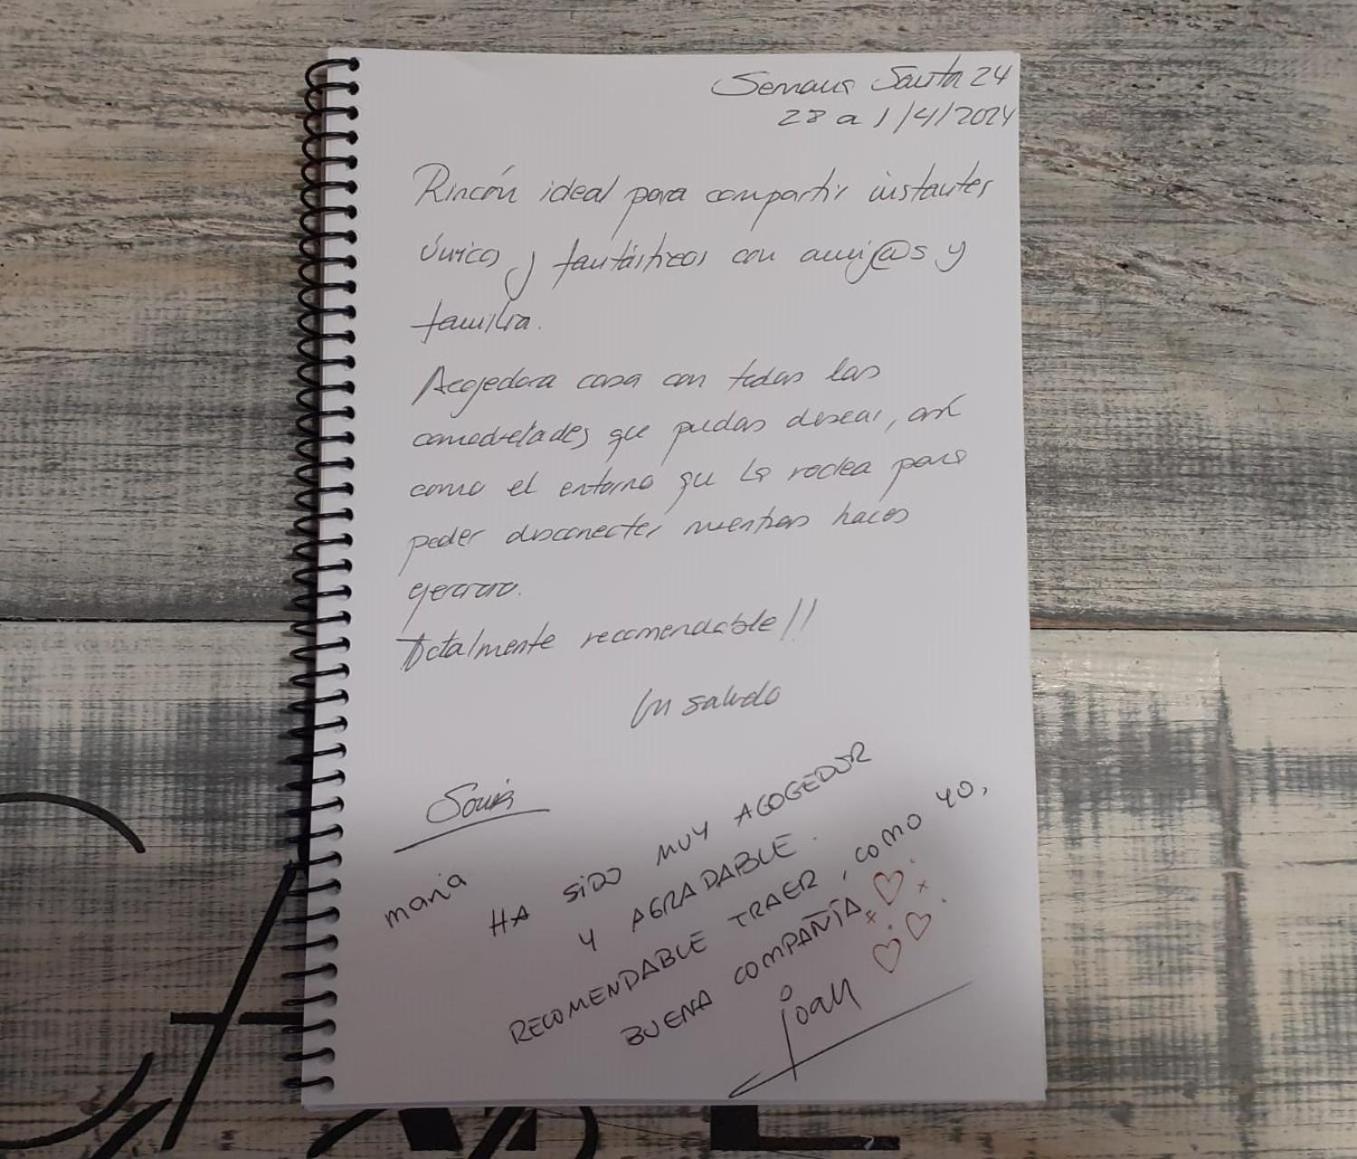 Semana Santa 24
28 a 1/4/2024
Rincón ideal para compartir instantes
únicos y fantásticos con amig@s y
familia.
Acojedora casa con todas las
comodidades que puedas desear, así
como el entorno que la rodea para
poder desconectar mientras haces
ejercicio.
Totalmente recomendable!!
Un saludo
Sonia
maria
HA SIDO MUY ACOGEDOR
Y AGRADABLE.
RECOMENDABLE TRAER, COMO YO,
BUENA COMPAÑÍA
joan